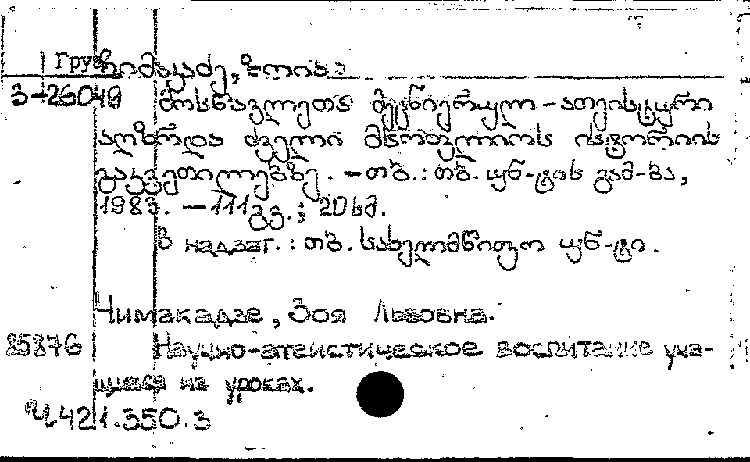 Груз
ჩიმაკაძე, ზოია
3-26049 მოსწავლეთა მეცნიერულ-ათეისტური
აღზრდა ძველი მსოფლიოს ისტორიის
გაკვეთილებზე. - თბ.: თბ. უნ-ტის გამ-ბა,
1983. - 111 გვ.; 20 სმ.
В надзаг.: თბ. სახელმწიფო უნ-ტი.
Чимакадзе, Зоя Львовна.
85876 Научно-атеистическое воспитание уча-
щихся на уроках.
Ч421.350.3